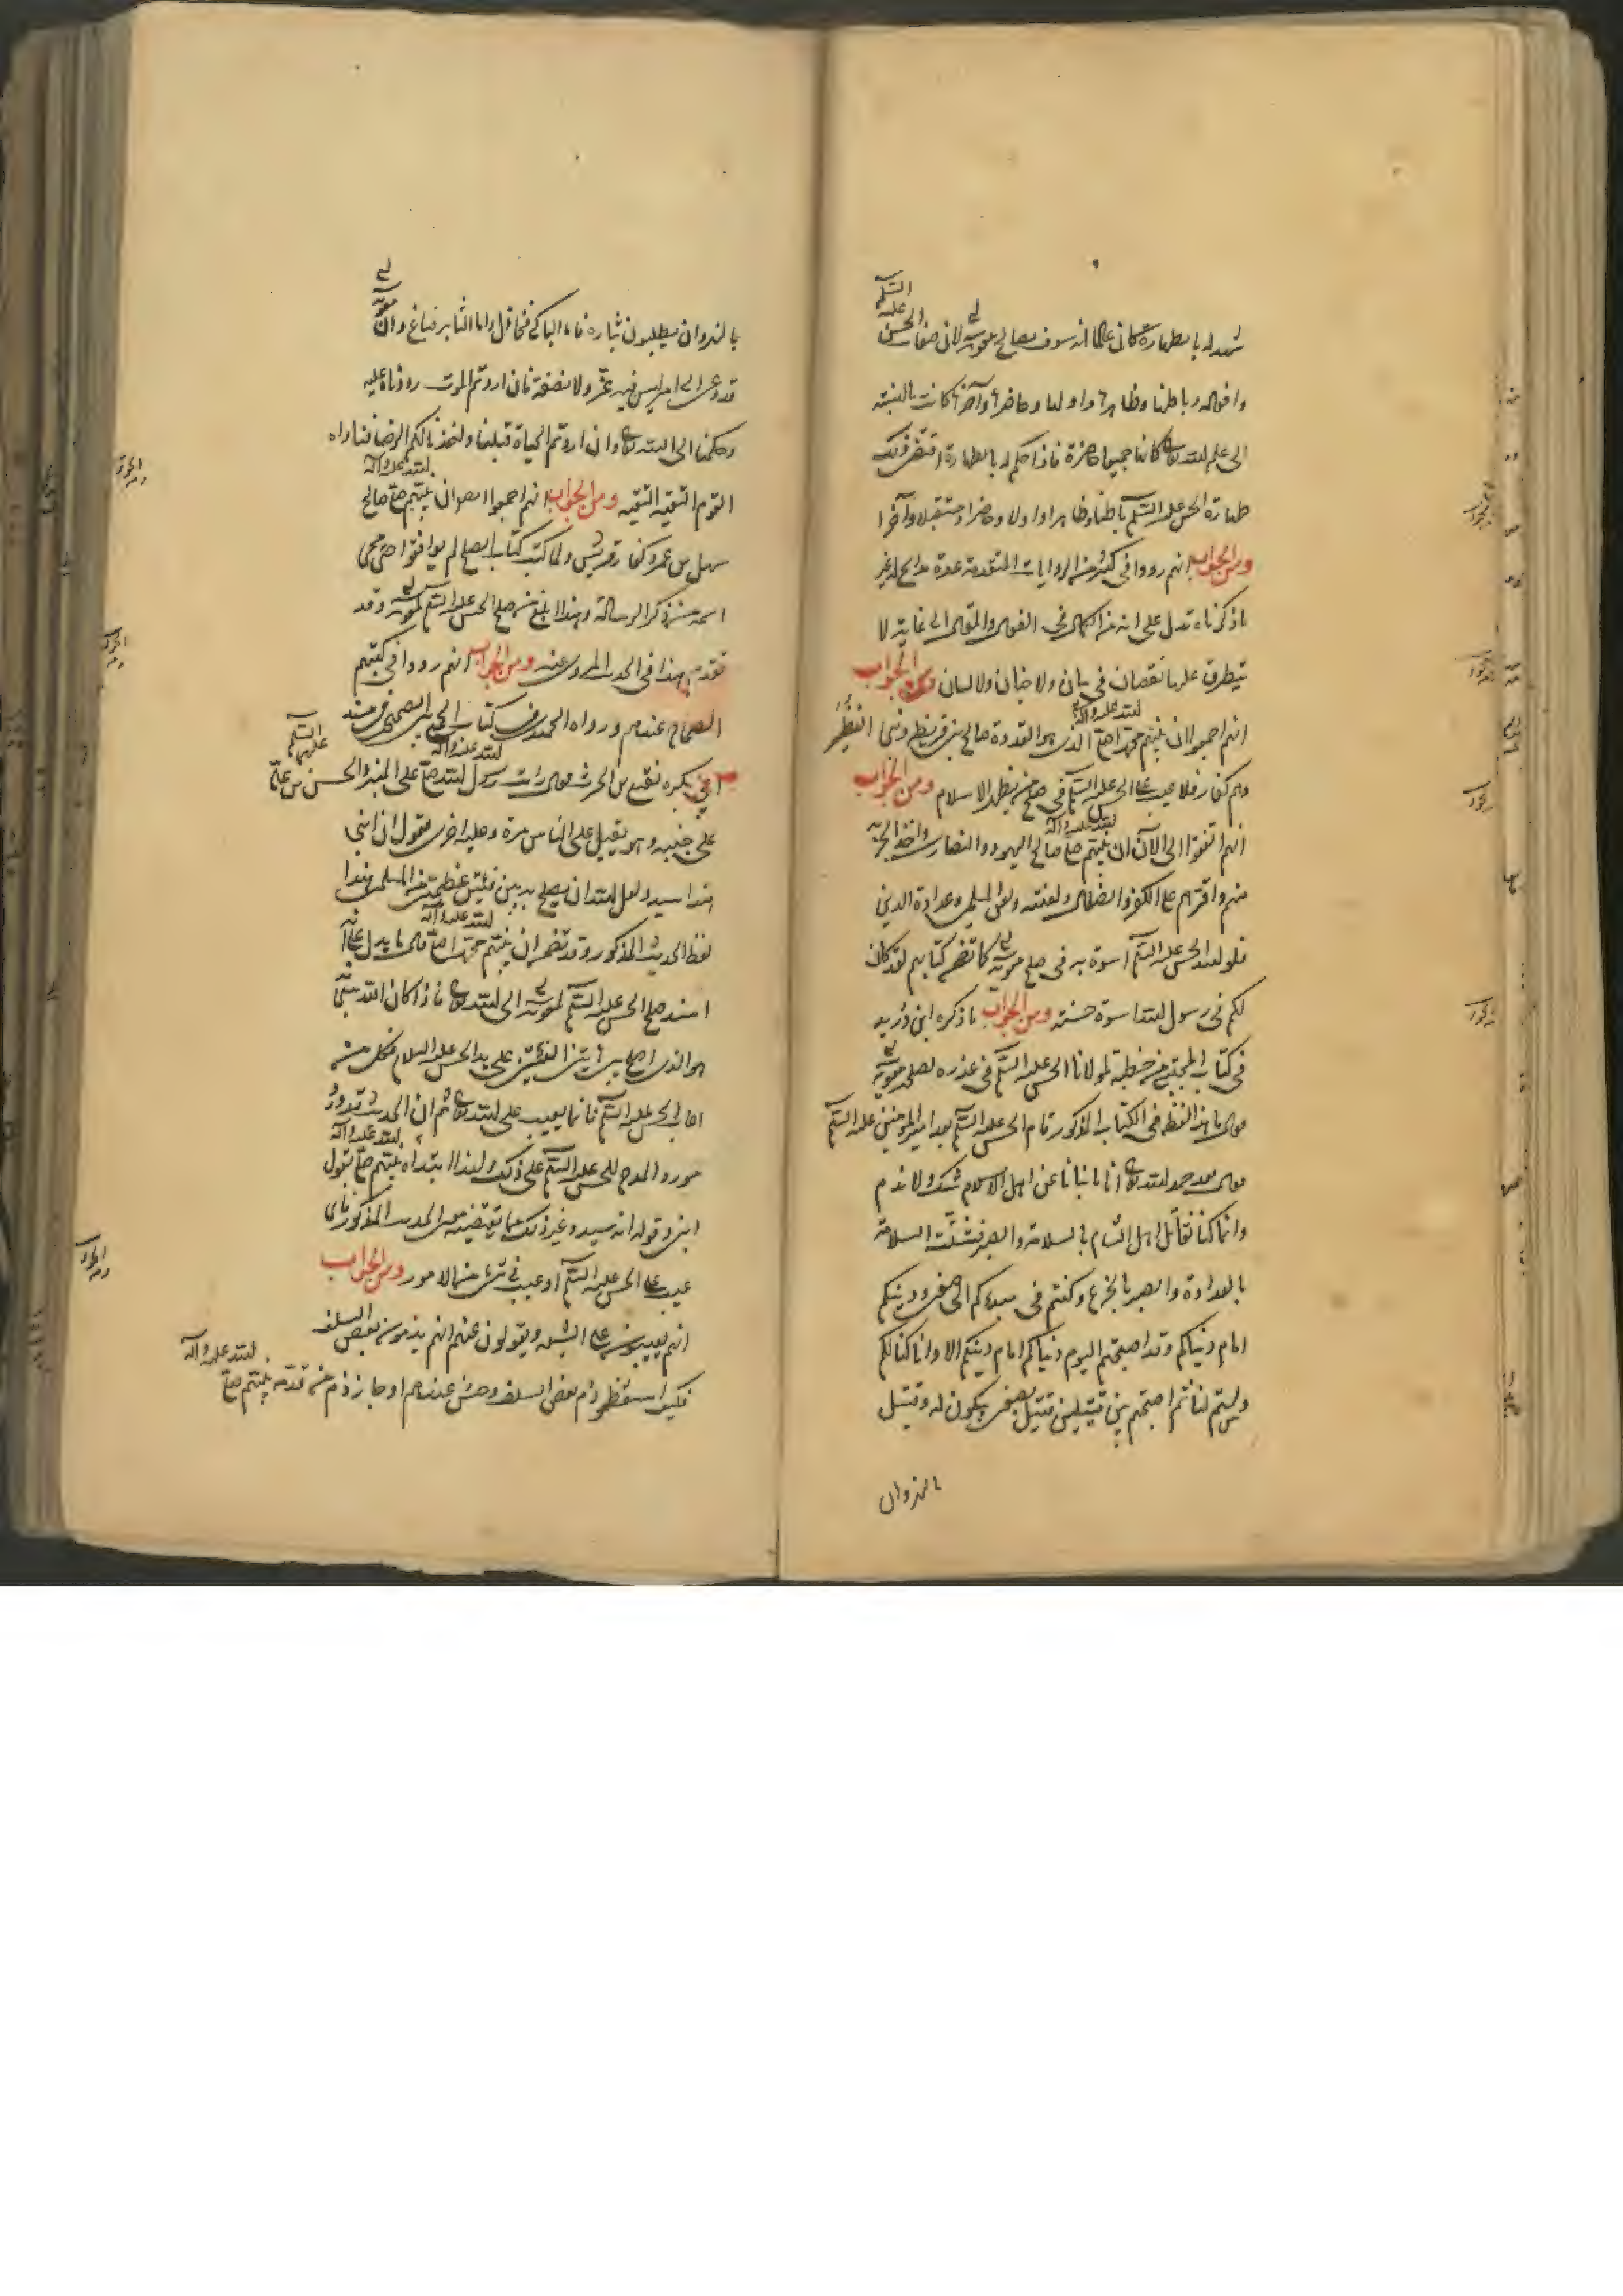 شهد له بالطهارة كان عالما انه سوف يصالح معوية لان صفات الحسن عليه السلم
وافعاله وباطنها وظاهرها واولها وحاضرها وآخرها كانت بالنسبة
الى علم الله تعالى كانها جميعا حاضرة فاذا حكم له بالطهارة اقتضى ذلك
طهارة الحسن عليه السلم باطنا وظاهرا واولا وحاضرا ومستقبلا وآخرا
ومن الجواب انهم رووا في كثير من الروايات المتقدمة عدة مدائح له غير
ما ذكرناه تدل على انه من الكمال في الفعال والمقال الى غاية لا
يتطرق عليها نقصان في بيان ولا جنان ولا لسان ومن الجواب
انهم اجمعوا ان نبيهم محمدا صلى الله عليه وآله الذي هو القدوة صالح بني قريظة وبني النضير
وهم كفار فلا عيب على الحسن عليه السلم في صلح من يظهر الاسلام ومن الجواب
انهم اتفقوا الى الآن ان نبيهم صلى الله عليه وآله صالح اليهود والنصارى واخذ الجزية
منهم واقرهم على الكفر والضلال ولعنته ولعن المسلمين وعداوة الدين
فلولد الحسن عليه السلم اسوة به في صلح معوية كما تضمن كتابهم لقد كان
لكم في رسول الله اسوة حسنة ومن الجواب ما ذكره ابن دريد
في كتاب المجتبى من خطبة لمولانا الحسن عليه السلم في عذره لصلح معوية
فقال ما هذا لفظه في الكتاب المذكور قام الحسن عليه السلم بعد امير المؤمنين عليه السلم
فقال بعد حمد الله تعالى انا ما ثنانا عن اهل الاسلام شك ولا ندم
وانما كنا نقاتل اهل الشام بالسلامة والصبر فشتت السلامة
بالعداوة والصبر بالجزع وكنتم في مبدءكم الى صفين ودينكم
امام دنياكم وقد اصبحتم اليوم دنياكم امام دينكم الا وانا كنا لكم
ولستم لنا ثم اصبحتم بين قتيلين قتيل بصفين يبكون له وقتيل
بالنهروان
بالنهروان يطلبون بثاره فاما الباكي فخاذل واما الثاير فباغ وان معوية
قد دعى الى امر ليس فيه عز ولا نصفة فان اردتم الموت رددناه عليه
وحكمنا الى الله تعالى وان اردتم الحياة قبلنا ولنخذ بالكم الرضا فناداه
القوم التقية التقية ومن الجواب انهم اجمعوا ان نبيهم صلى الله عليه وآله صالح
سهيل بن عمرو كفار قريش ولما كتب كتاب الصلح لم يوافقوا حتى محى
اسمه من ذكر الرسالة وهذا ابلغ من صلح الحسن عليه السلم لمعوية وقد
تقدم هذا في الحديث المروي عنه ومن الجواب انهم رووا في كتبهم
الصحاح عندهم ورواه الحميدي في كتاب الجمع بين الصحيحين في مسند
ابي بكره نفيع بن الحرث قال رايت رسول الله صلى الله عليه وآله على المنبر والحسن بن علي عليهما السلم
على جنبه وهو يقبل على الناس مرة وعليه اخرى يقول ان ابني
هذا سيد ولعل الله ان يصلح به بين فئتين عظيمتين من المسلمين هذا
لفظ الحديث المذكور وقد تضمن ان نبيهم محمدا صلى الله عليه وآله قال ما يدل على انه
اسند صلح الحسن عليه السلم لمعوية الى الله تعالى فاذا كان الله
هو الذي اصلح بين هاتين الفئتين على يد الحسن عليه السلام فكل من
اعاب الحسن عليه السلم فانما يعيب على الله تعالى ثم ان الحديث قد ورد
مورد المدح للحسن عليه السلم على ذلك ولهذا ابتداه نبيهم صلى الله عليه وآله بقول
ابني وقوله انه سيد وغير ذلك مما يقتضيه معنى الحديث المذكور فاى
عيب على الحسن عليه السلم او عيب في شيء من الامور ومن الجواب
انهم يعيبون على الشيعة ويقولون عنهم انهم يذمون بعض السلف
فكيف استعظموا ذم بعض السلف وحسن عندهم او جاز ذم من قدمه نبيهم صلى الله عليه وآله